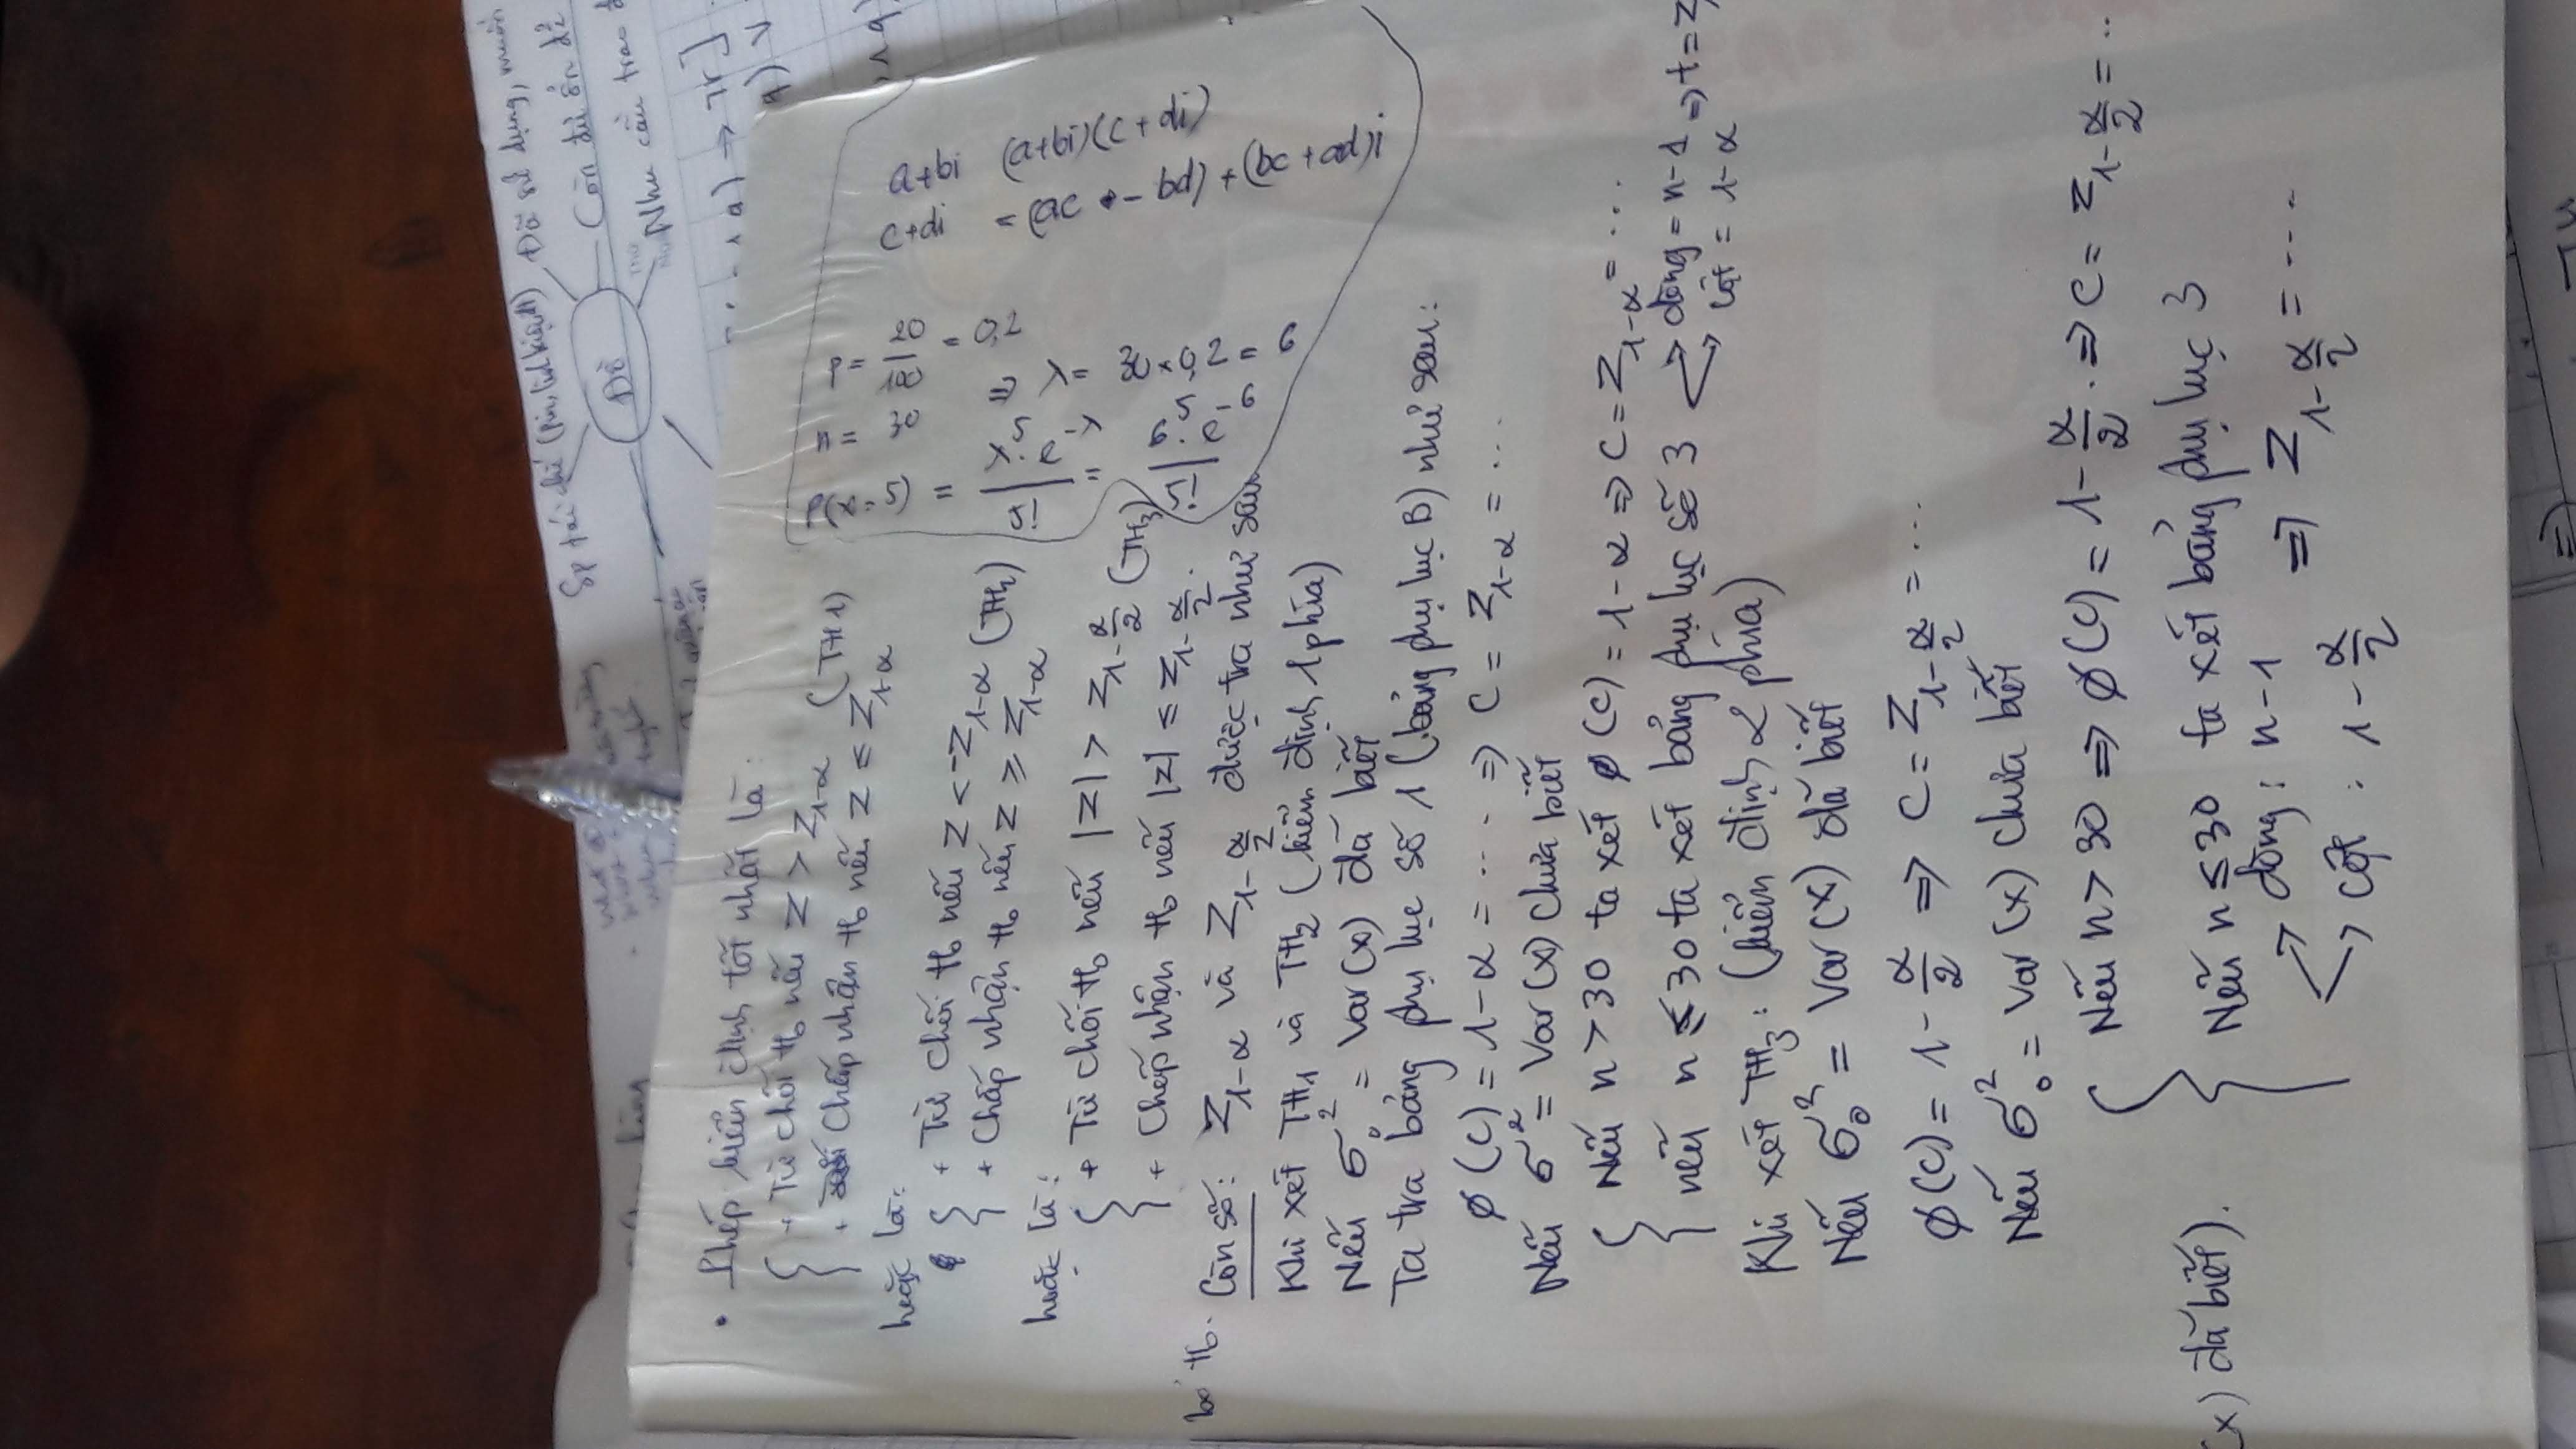 Sp tái chế (pin, linh kiện)
Đồ sử dụng, muốn
Đồ
Còn đủ ổn để
Nhu cầu trao đ
• Phép kiểm định tốt nhất là:
+ Từ chối H₀ nếu Z > Z₁₋α (TH1)
+ Chấp nhận H₀ nếu Z ≤ Z₁₋α
hoặc là:
+ Từ chối H₀ nếu Z < -Z₁₋α (TH2)
+ Chấp nhận H₀ nếu Z ≥ Z₁₋α
hoặc là:
+ Từ chối H₀ nếu |Z| > Z_{1-α/2} (TH3)
+ Chấp nhận H₀ nếu |Z| ≤ Z_{1-α/2}.
bỏ H₀.
Còn số: Z₁₋α và Z_{1-α/2} được tra như sau
Khi xét TH1 và TH2 (kiểm định 1 phía)
Nếu σ₀² = Var(x) đã biết
Ta tra bảng phụ lục số 1 (bảng phụ lục B) như sau:
Ø(C) = 1-α = .... => C = Z₁₋α = ...
Nếu σ² = Var(x) chưa biết
Nếu n > 30 ta xét Ø(C) = 1-α => C = Z₁₋α = ...
nếu n ≤ 30 ta xét bảng phụ lục số 3
dòng = n-1
cột = 1-α
=> t = Z
Khi xét TH3: (kiểm định 2 phía)
Nếu σ₀² = Var(x) đã biết
Ø(C) = 1 - α/2 => C = Z_{1-α/2} = ...
Nếu σ₀² = Var(x) chưa biết
Nếu n > 30 => Ø(C) = 1 - α/2. => C = Z_{1-α/2} = ..
(x) đã biết).
Nếu n ≤ 30 ta xét bảng phụ lục 3
dòng: n-1
cột: 1 - α/2
=> Z_{1-α/2} = ....
a+bi (a+bi)(c+di)
c+di = (ac - bd) + (bc + ad)i
P = 20/100 = 0,2
n = 30 => λ = 30×0,2 = 6
P(x=5) = λ⁵.e^{-λ}/5! = 6⁵.e^{-6}/5!